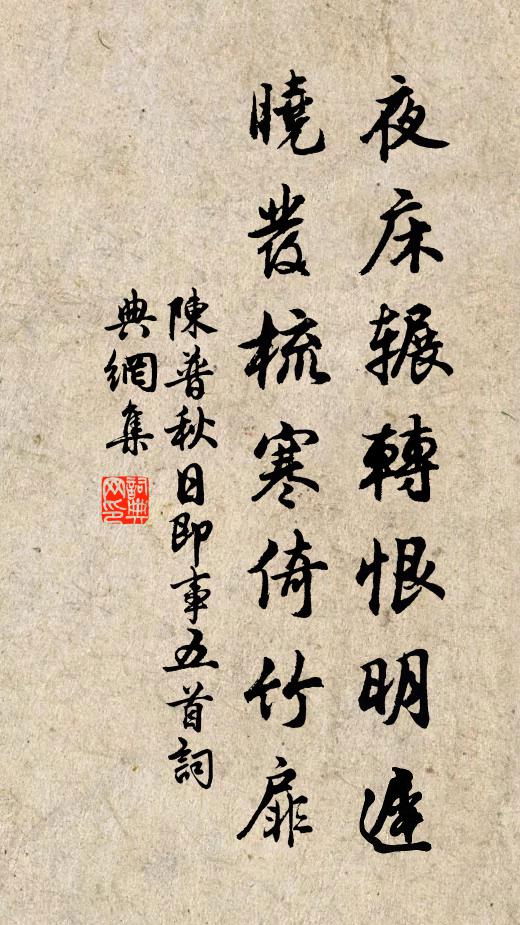 夜床辗轉恨明遲
曉發梳寒倚竹扉
陳普秋日即事五首詞
典網集
詞典網印